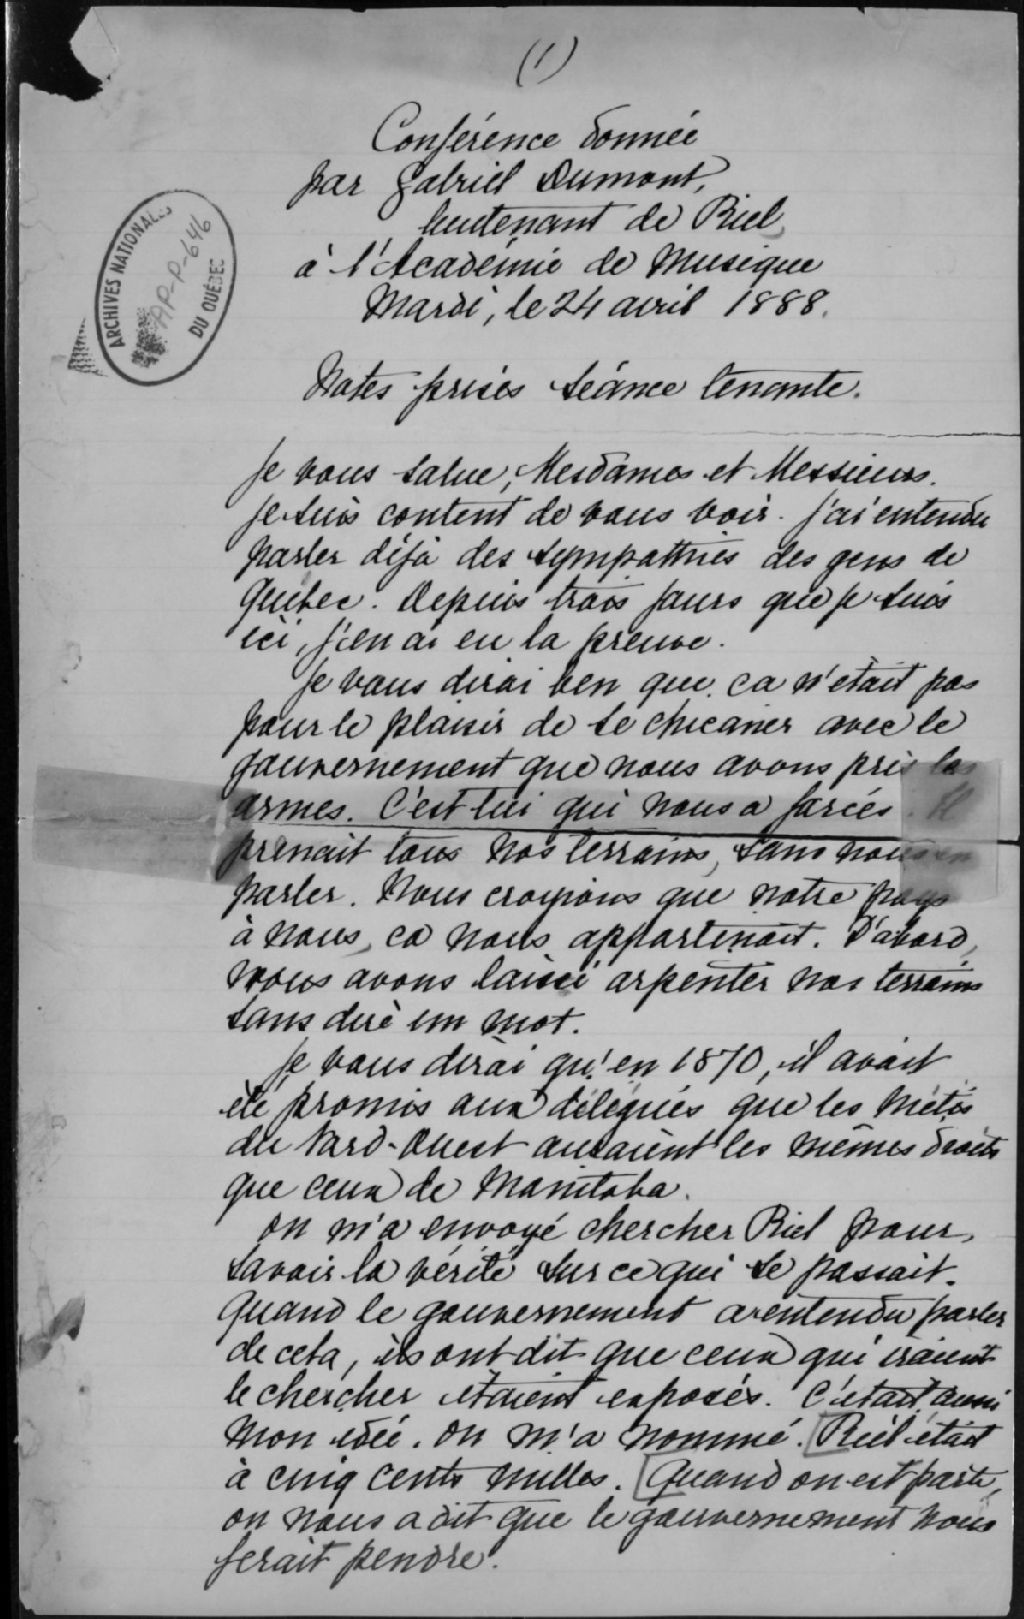 (1)
Conférence donnée
par Gabriel Dumont,
lieutenant de Riel,
à l'Académie de Musique
Mardi, le 24 avril 1888.
ARCHIVES NATIONALES
AP-P-646
DU QUÉBEC
Notes prises séance tenante.
Je vous salue, Mesdames et Messieurs.
Je suis content de vous voir. J'ai entendu
parler déjà des sympathies des gens de
Québec. Depuis trois jours que je suis
ici, j'en ai eu la preuve.
Je vous dirai ben que ça n'était pas
pour le plaisir de se chicaner avec le
gouvernement que nous avons pris les
armes. C'est lui qui nous a forcés. Il
prenait tous nos terrains, sans nous en
parler. Nous croyions que notre pays
à nous, ça nous appartenait. D'abord,
nous avons laissé arpenter nos terrains
sans dire un mot.
Je vous dirai qu'en 1870, il avait
été promis aux délégués que les Métis
du Nord-Ouest auraient les mêmes droits
que ceux de Manitoba.
On m'a envoyé chercher Riel pour
savoir la vérité sur ce qui se passait.
Quand le gouvernement a entendu parler
de cela, ils ont dit que ceux qui iraient
le chercher étaient exposés. C'était aussi
mon idée. On m'a nommé. [Riel était
à cinq cents milles. [Quand on est parti,
on nous a dit que le gouvernement nous
ferait pendre.